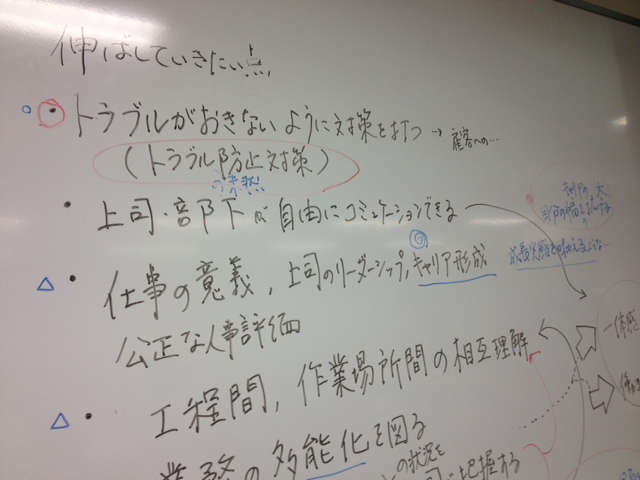 伸ばしていきたい点
・トラブルがおきないように対策を打つ → 顧客への…
(トラブル防止対策)
の未然
・上司・部下が自由にコミュニケーションできる
・仕事の意義,上司のリーダーシップ,キャリア形成
公正な人事評価
・工程間,作業場所間の相互理解
業務の多能化を図る
の状況を
把握する
一体感